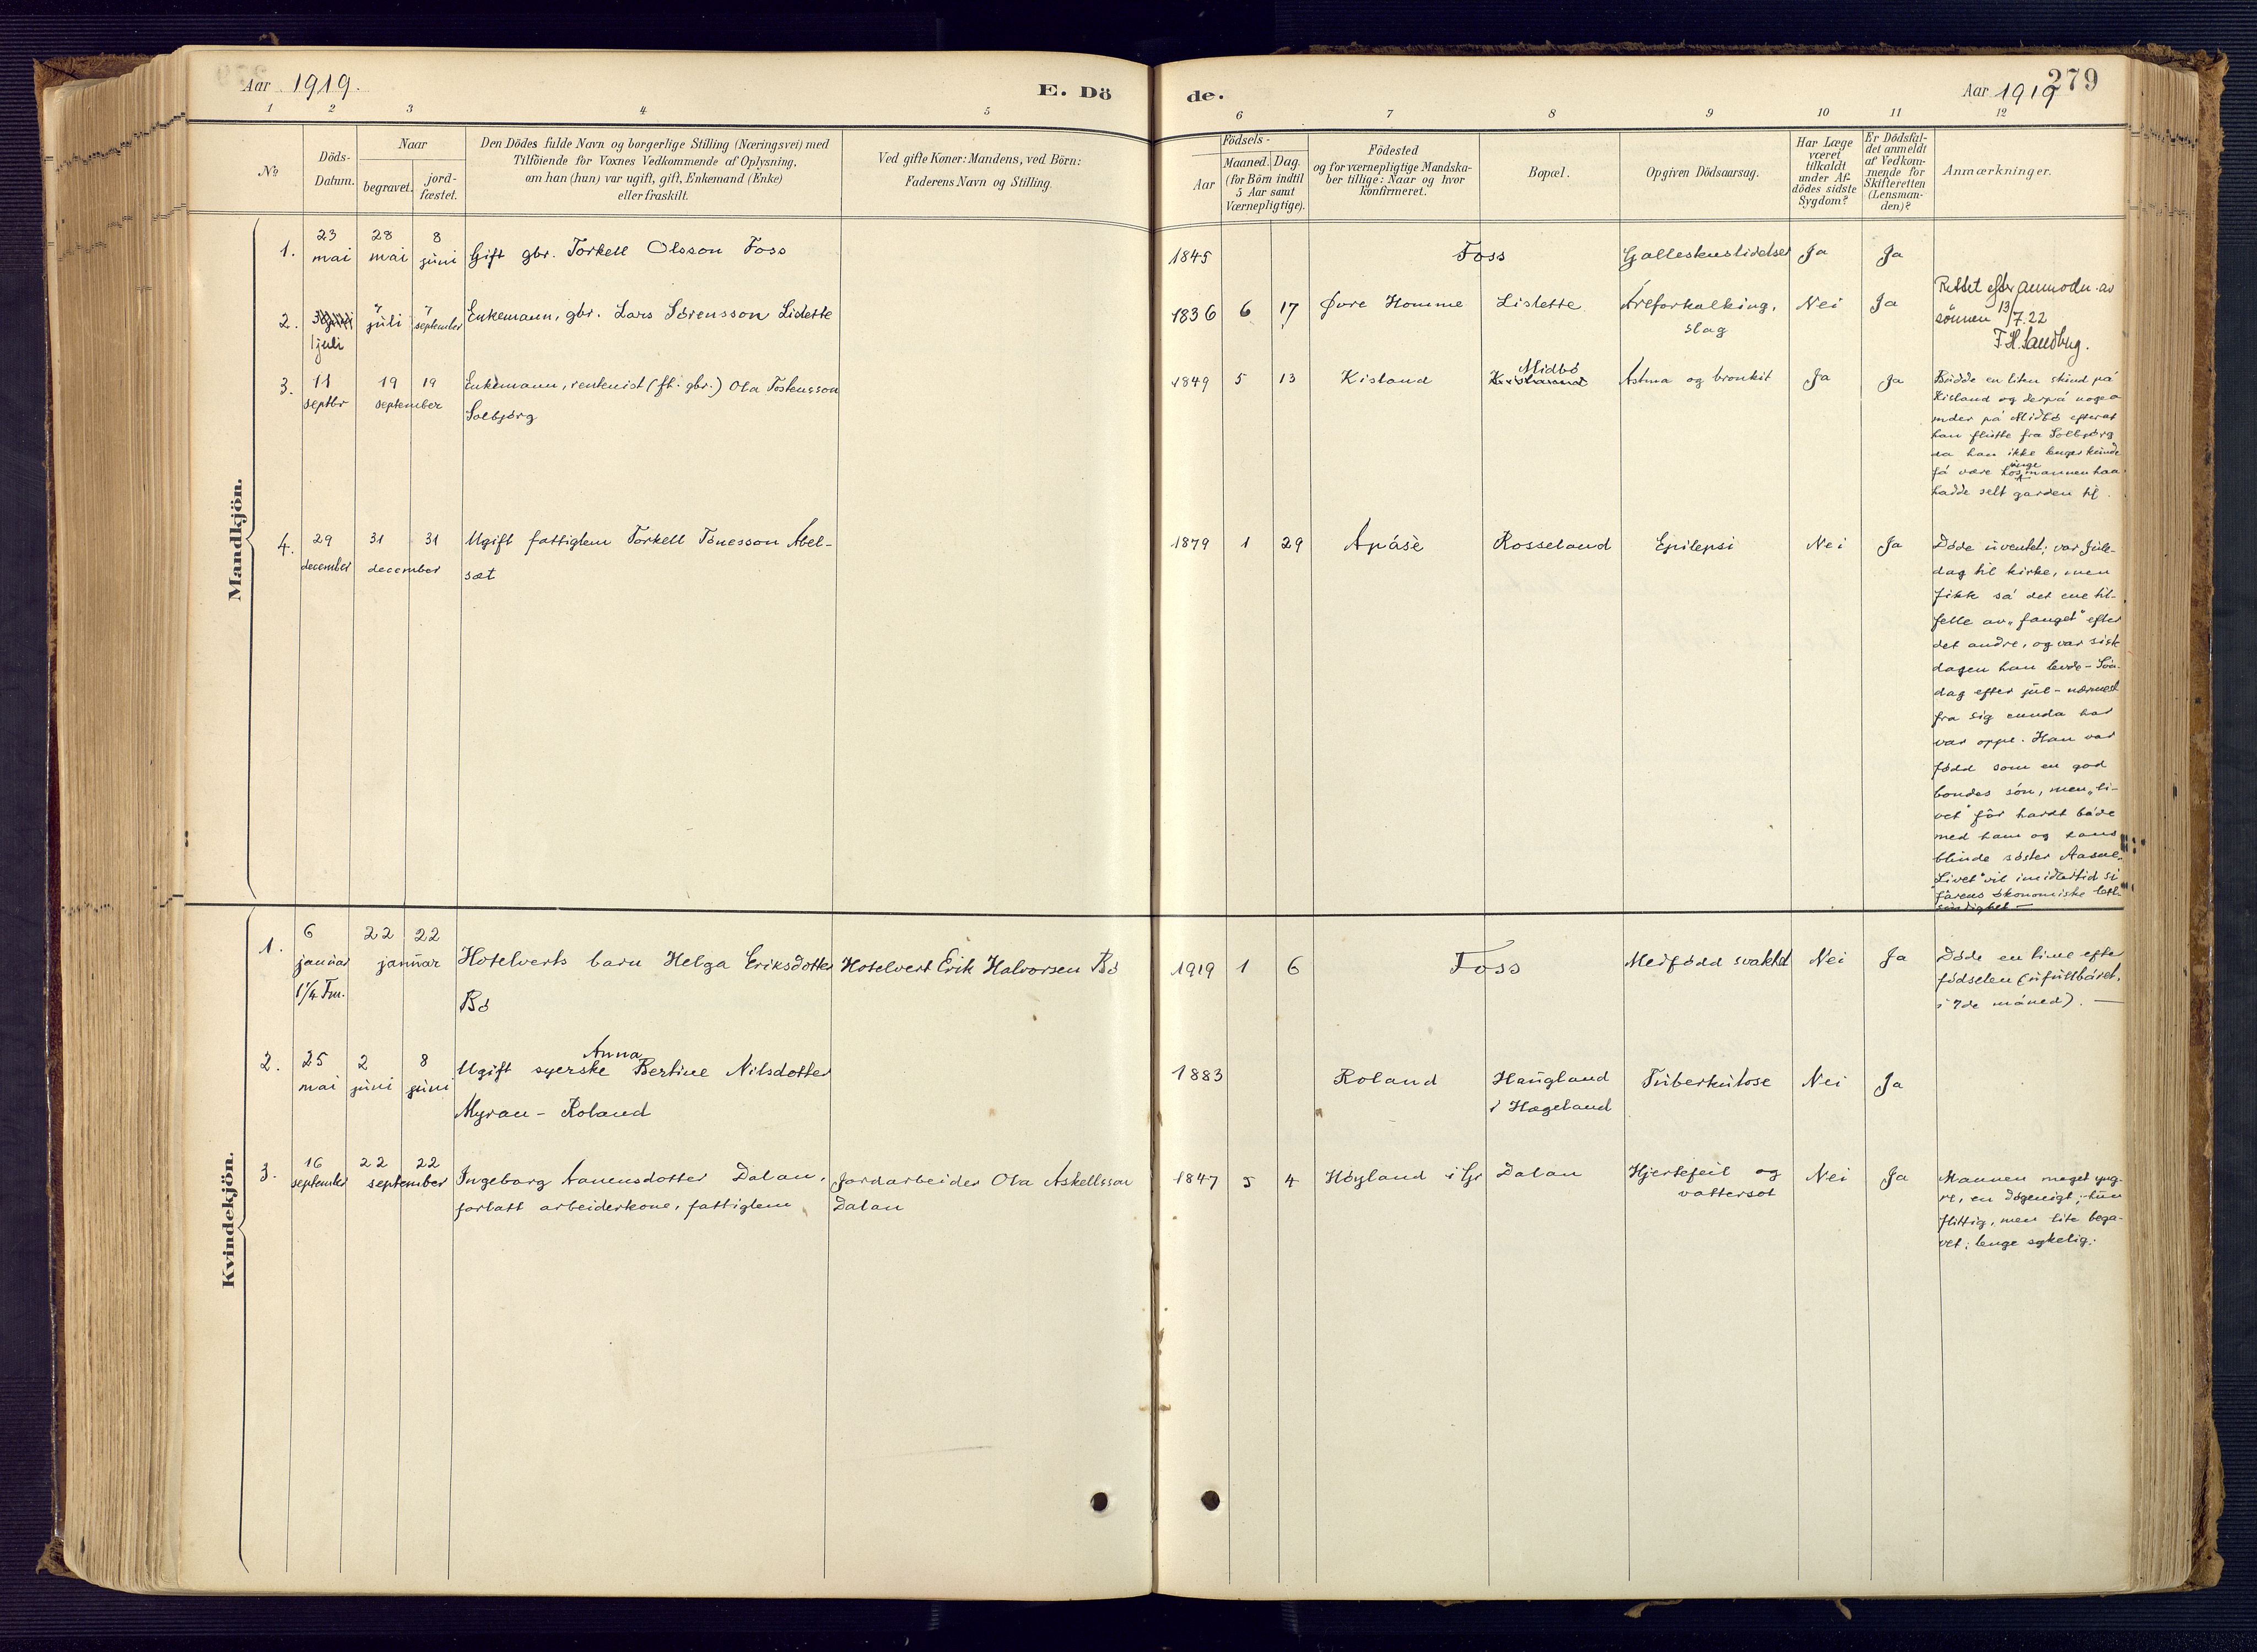 Aar 1919.
E. Dö
de.
Aar 1919
279
1 2 3 4 5 6 7 8 9 10 11 12
No
Döds-
Datum.
Naar
begravet.
jord-
fæstet.
Den Dödes fulde Navn og borgerlige Stilling (Næringsvei) med
Tilföiende for Voxnes Vedkommende af Oplysning,
om han (hun) var ugift, gift, Enkemand (Enke)
eller fraskilt.
Ved gifte Koner: Mandens, ved Börn:
Faderens Navn og Stilling.
Födsels-
Aar
Maaned. Dag.
(for Börn indtil
5 Aar samt
Værnepligtige).
Födested
og for værnepligtige Mandska-
ber tillige: Naar og hvor
konfirmeret.
Bopæl.
Opgiven Dödsaarsag.
Har Læge
været
tilkaldt
under Af-
dödes sidste
Sygdom?
Er Dödsfal-
det anmeldt
af Vedkom-
mende for
Skifteretten
(Lensman-
den)?
Anmærkninger.
Mandkjön.
1.
23
mai
28
mai
8
juni
Gift gbr. Torkell Olsson Foss
1845
Foss
Ja
Ja
2.
1 juli
7
juli
7
september
Enkemann, gbr. Lars Sørensson Lidette
1836 6 17
Øvre Homme
Lislette
Åreforkalking,
slag
Nei
Ja
Rettet efter anmodn. av
sønnen 13/7.22
F. H. Sandbug.
3.
11
septbr
19 19
september
Enkemann, rentenist (fh. gbr.) Ola Tostensson
Solbjørg
1849 5 13
Kisland
Midbø
Astma og bronkit
Ja
Ja
Budde en liten stund på
Kisland og derpå nogen
mder på Midbø efterat
han flutte fra Solbjørg
da han ikke lenger kunde
få være hos unge mannen han
hadde selt garden til.
4.
29
december
31 31
december
Ugift fattiglem Torkell Tønesson Abel-
sæt
1879 1 29
Åpåse
Rosseland
Epilepsi
Nei
Ja
Døde uventet; var Jule-
dag til kirke, men
fikk så det ene til-
felle av „fanget" efter
det andre, og var siste
dagen han levde - Søn-
dag efter jul - nærmest
fra sig enda han
var oppe. Han var
fødd som en god
bondes søn, men „li-
vet" fór hardt både
med ham og hans
blinde søster Aasne.
„Livet" vil imidlertid si
farens økonomiske lett-
sindighet —
Kvindekjön.
1.
6
januar
1¼ Fm.
22 22
januar
Hotelverts barn Helga Eriksdotter
Bø
Hotelvert Erik Halvorsen Bø
1919 1 6
Foss
Medfødd svakhet
Nei
Ja
Døde en time efter
fødselen (ufullbåret,
i 7de måned). —
2.
25
mai
2
juni
8
juni
Anna
Ugift syerske Bertine Nilsdotter
Myran - Roland
1883
Roland
Haugland
i Hægeland
Tuberkulose
Nei
Ja
3.
16
september
22 22
september
Ingeborg Aanensdotter Dalan,
forlatt arbeiderkone, fattiglem
Jordarbeider Ola Askellsson
Dalan
1847 5 4
Høyland i Gr
Dalan
Hjertefeil og
vattersot
Nei
Ja
Mannen meget yng-
re, en døgenigt; hun
flittig, men lite bega-
vet; lenge sykelig.